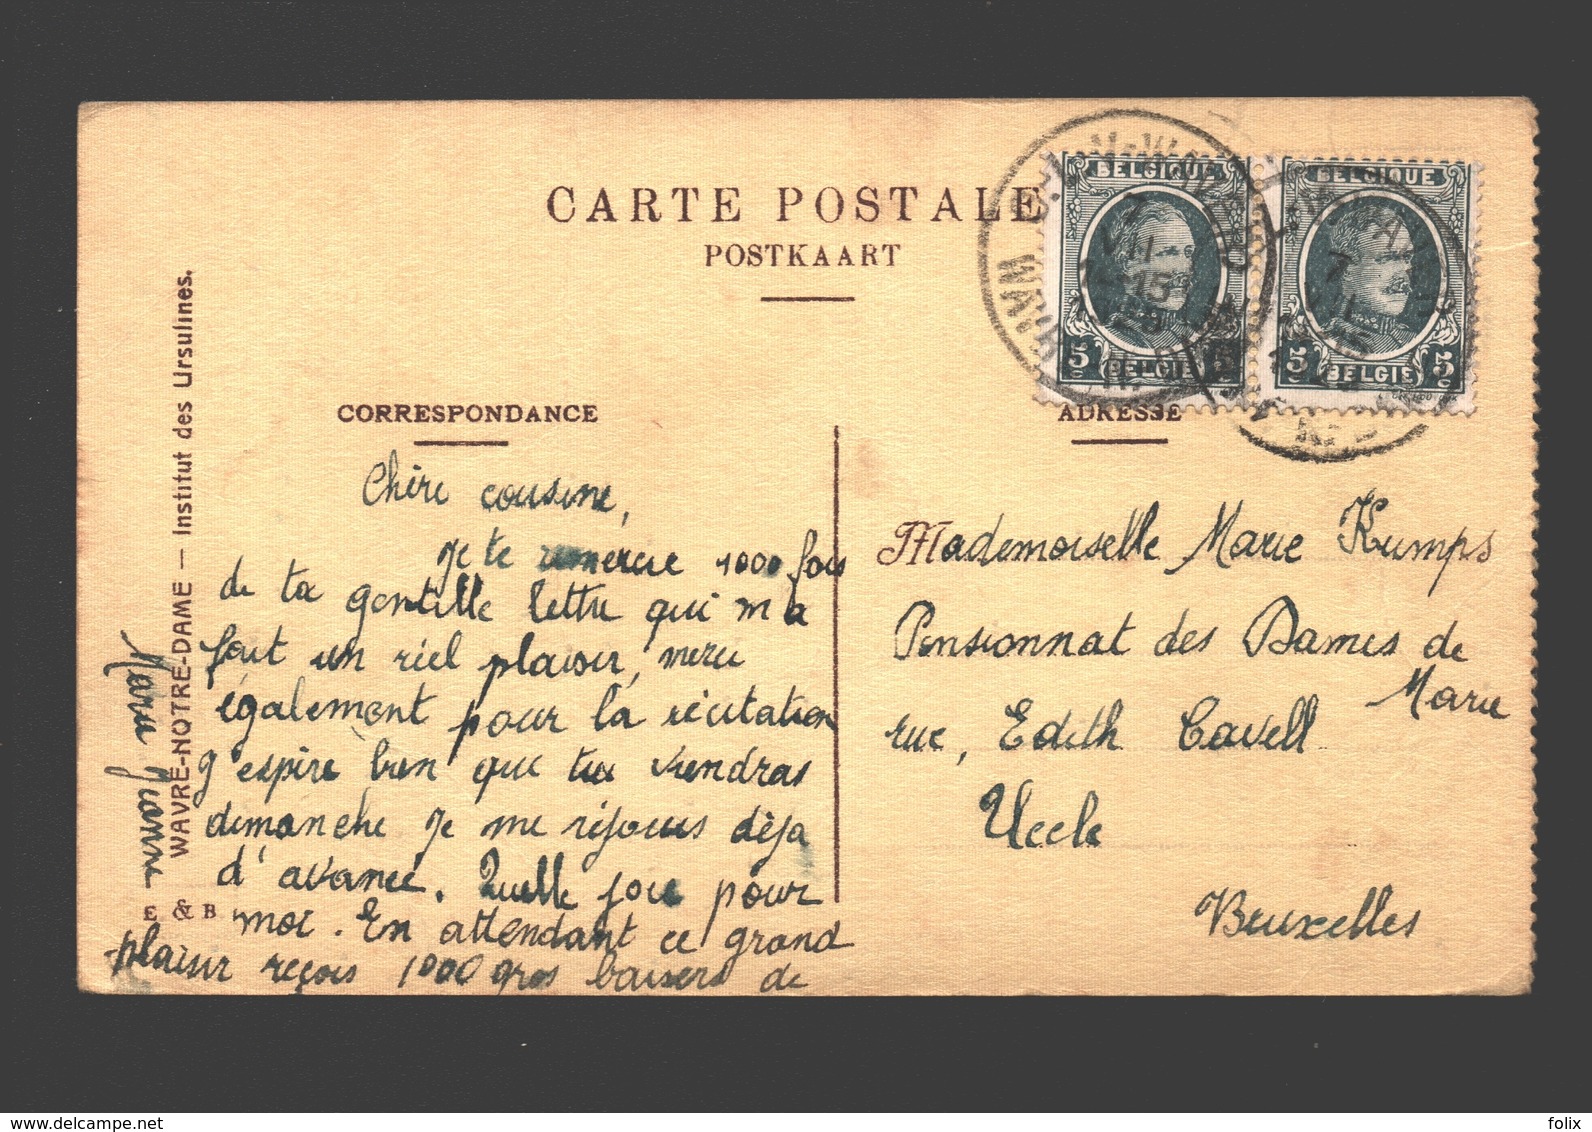 CARTE POSTALE
POSTKAART
BELGIQUE
5c
BELGIE
5c
BELGIQUE
5c
BELGIE
5c
7
VII
15
7
VII
15
CORRESPONDANCE
ADRESSE
Chère cousine,
Je te remercie 1000 fois
de ta gentille lettre qui m'a
fait un réel plaisir, merci
également pour la récitation
J'espère bien que tu viendras
dimanche je me réjouis déjà
d'avance. Quelle joie pour
moi. En attendant ce grand
plaisir reçois 1000 gros baisers de
Marie Jeanne
WAVRE-NOTRE-DAME — Institut des Ursulines.
E & B
Mademoiselle Marie Kumps
Pensionnat des Dames de
Marie
rue, Edith Cavell
Uccle
Bruxelles
www.delcampe.net
folix